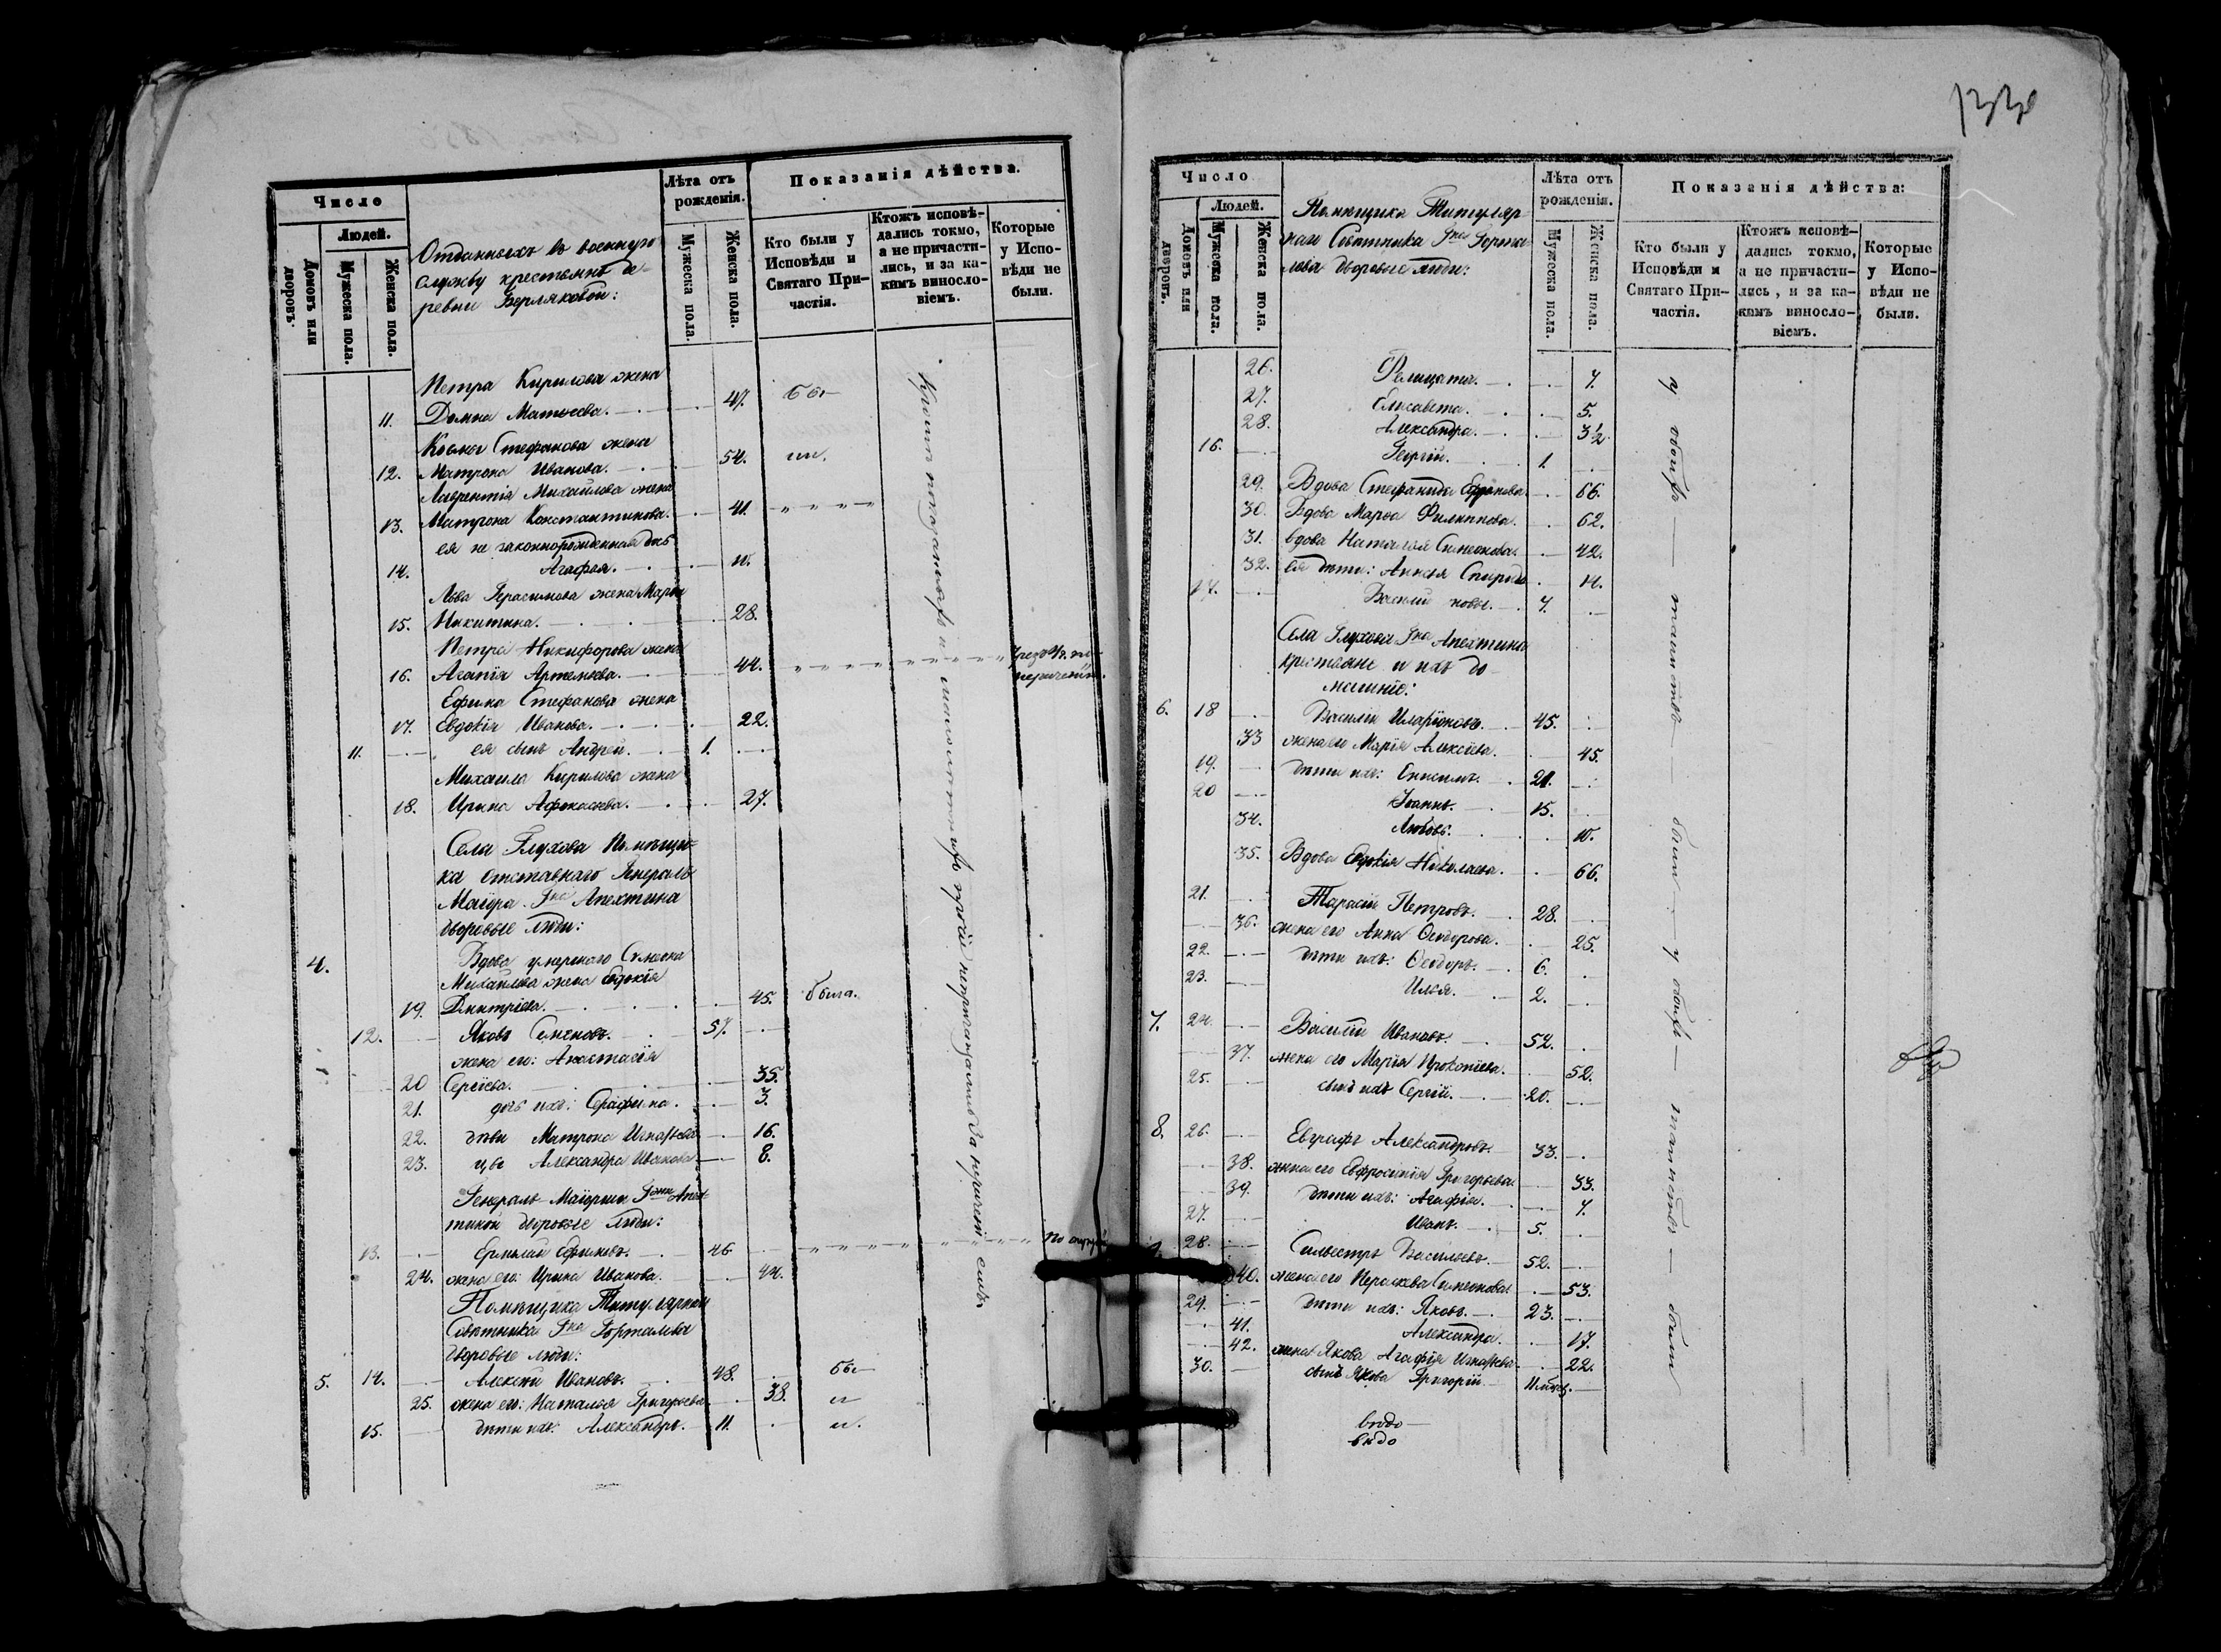 Число
Людей.
Домовъ или дворовъ.
Мужеска пола.
Женска пола.
Отданныхъ въ военную
службу крестьянъ де-
ревни Берляковой:
Лѣта отъ рожденія.
Мужеска пола.
Женска пола.
Показанія дѣйства.
Кто были у Исповѣди и Святаго При-частія.
Ктожъ исповѣ-дались токмо, а не причасти-лись, и за ка-кимъ винословіемъ.
Которые у Испо-вѣди не были.
Петра Кирилова жена
11. Домна Матѳеева. 47.
Стефанова жена
12. Матрона Иванова. 54.
Лаврентія Михайлова жена
13. Матрона Константинова. 41.
ея не законнорожденная дочь
14. Агафья.
Льва Герасимова жена Марья
15. Никитина. 28.
Петра Никифорова жена
16. Агапія Артемьева. 44.
Ефима Стефанова жена
17. Евдокія Иванова. 22.
11. ея сынъ Андрей. 1.
Михаила Кирилова жена
18. Ирина Афонасьева. 27.
Села Глухова Помѣщи-
ка отставнаго Генералъ
Маіора Гна Апехтина
дворовые люди:
4. Вдова умершаго Симеона
Михайлова жена Евдокія
19. Димитріева. 45. была.
12. Яковъ Семеновъ. 57.
жена его: Анастасія
20 Сергіева. 35.
21. дочь ихъ: Серафима. 3.
22. дѣви Матрона Игнатьева 16.
23. цы Александра Иванова 8.
Генералъ Маіорши Гжи Апех-
тиной дворовые люди:
13. Ермолай Ефимовъ. 46
24. жена его: Ирина Иванова. 44.
Помѣщика Титулярнаго
Совѣтника Гна Горталова
дворовые люди:
5. 14. Алексѣй Ивановъ. 48.
25. жена его: Наталья Григорьева 38.
15. дѣти ихъ: Александръ. 11.
Число
Людей.
Домовъ или дворовъ.
Мужеска пола.
Женска пола.
Помѣщика Титуляр-
наго Совѣтника Гна Горта-
лова дворовые люди:
Лѣта отъ рожденія.
Мужеска пола.
Женска пола.
Показанія дѣйства:
Кто были у Исповѣди и Святаго При-частія.
Ктожъ исповѣ-дались токмо, а не причасти-лись, и за ка-кимъ винословіемъ.
Которые у Испо-вѣди не были.
26. Фелицата. 7.
27. Елисавета. 5.
28. Александра. 3½
16. Георгій. 1.
29. Вдова Стефанида 66.
30. Вдова Марѳа Филиппова. 62.
31. вдова Наталья Симеонова. 42.
32. ея дѣти: Анисья Спиридо
17. Василій новы. 7.
Села Глухова Гна Апехтина
крестьяне и ихъ до-
машніе:
6. 18 Василій Иларіоновъ. 45.
33 жена его Марія Алексіева. 45.
19. дѣти ихъ: Онисимъ. 21.
20 Іоаннъ. 15.
34. Любовь. 10.
35. Вдова Евдокія Николаева. 66.
21. Тарасій Петровъ. 28.
36. жена его Анна Ѳеодорова. 25.
22. дѣти ихъ: Ѳеодоръ. 6.
23. Илья. 2.
7. 24. Василій Ивановъ. 52.
37. жена его Марія Прокопіева. 52.
25. сынъ ихъ Сергій. 20.
8. 26. Евграфъ Александровъ. 33.
38. жена его Евфросинія Григорьева 33.
39. дѣти ихъ: Агафія. 7.
27. Иванъ. 5.
28. Сильвестръ Васильевъ. 52.
40. жена его Параскева Симеонова 53.
29. дѣти ихъ: Яковъ. 23.
41. Александра. 17.
42. жена Якова Агафія Игнатьева 22.
30. сынъ Якова Григорій
у обоихъ таинствъ были у обоихъ таинствъ были